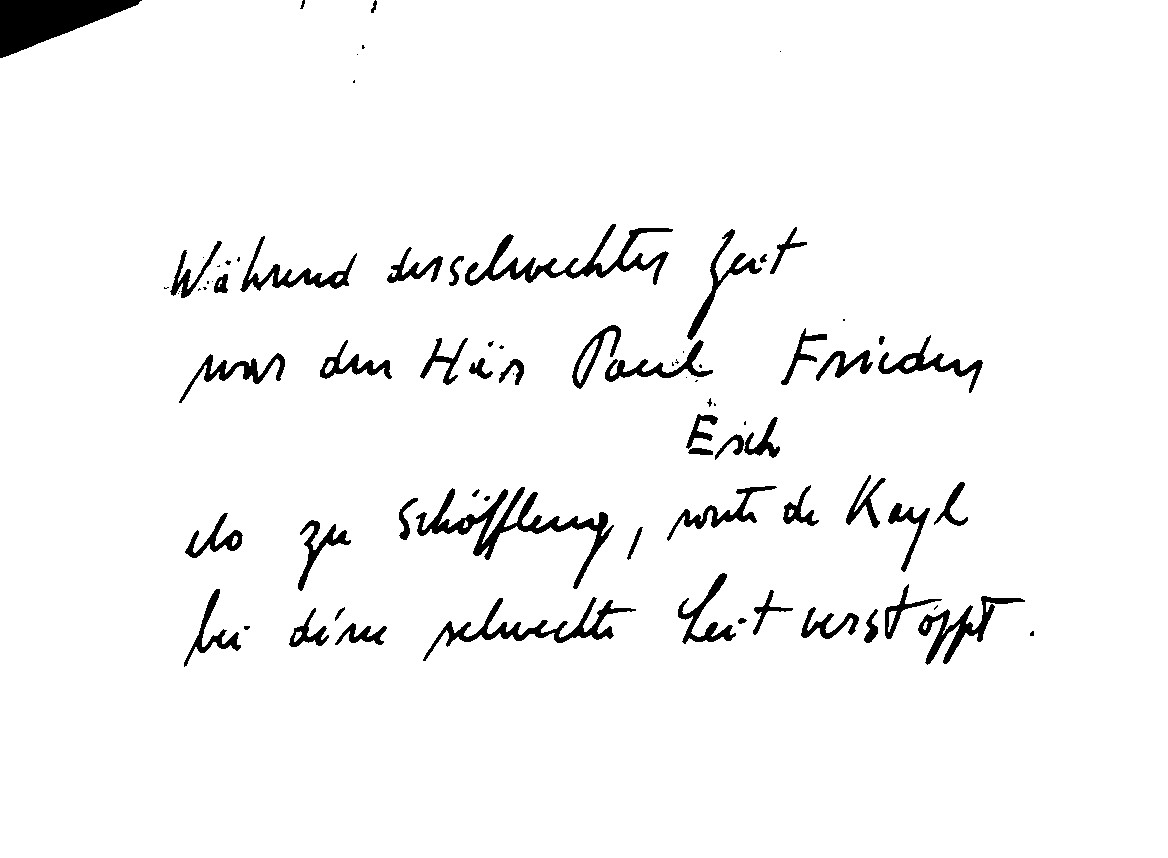 Während derselwechter Zeit
war den Här Paul Frieden
Esch
do zu Schöffleng, route de Kayl
bei déne selwechte Leit verstoppt.